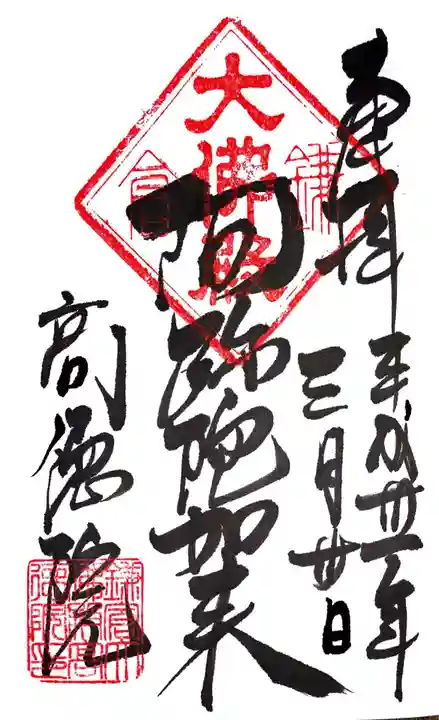 奉拝
平成卅一年
三月廿日
阿弥陀如来
大佛殿
鎌倉
高徳院